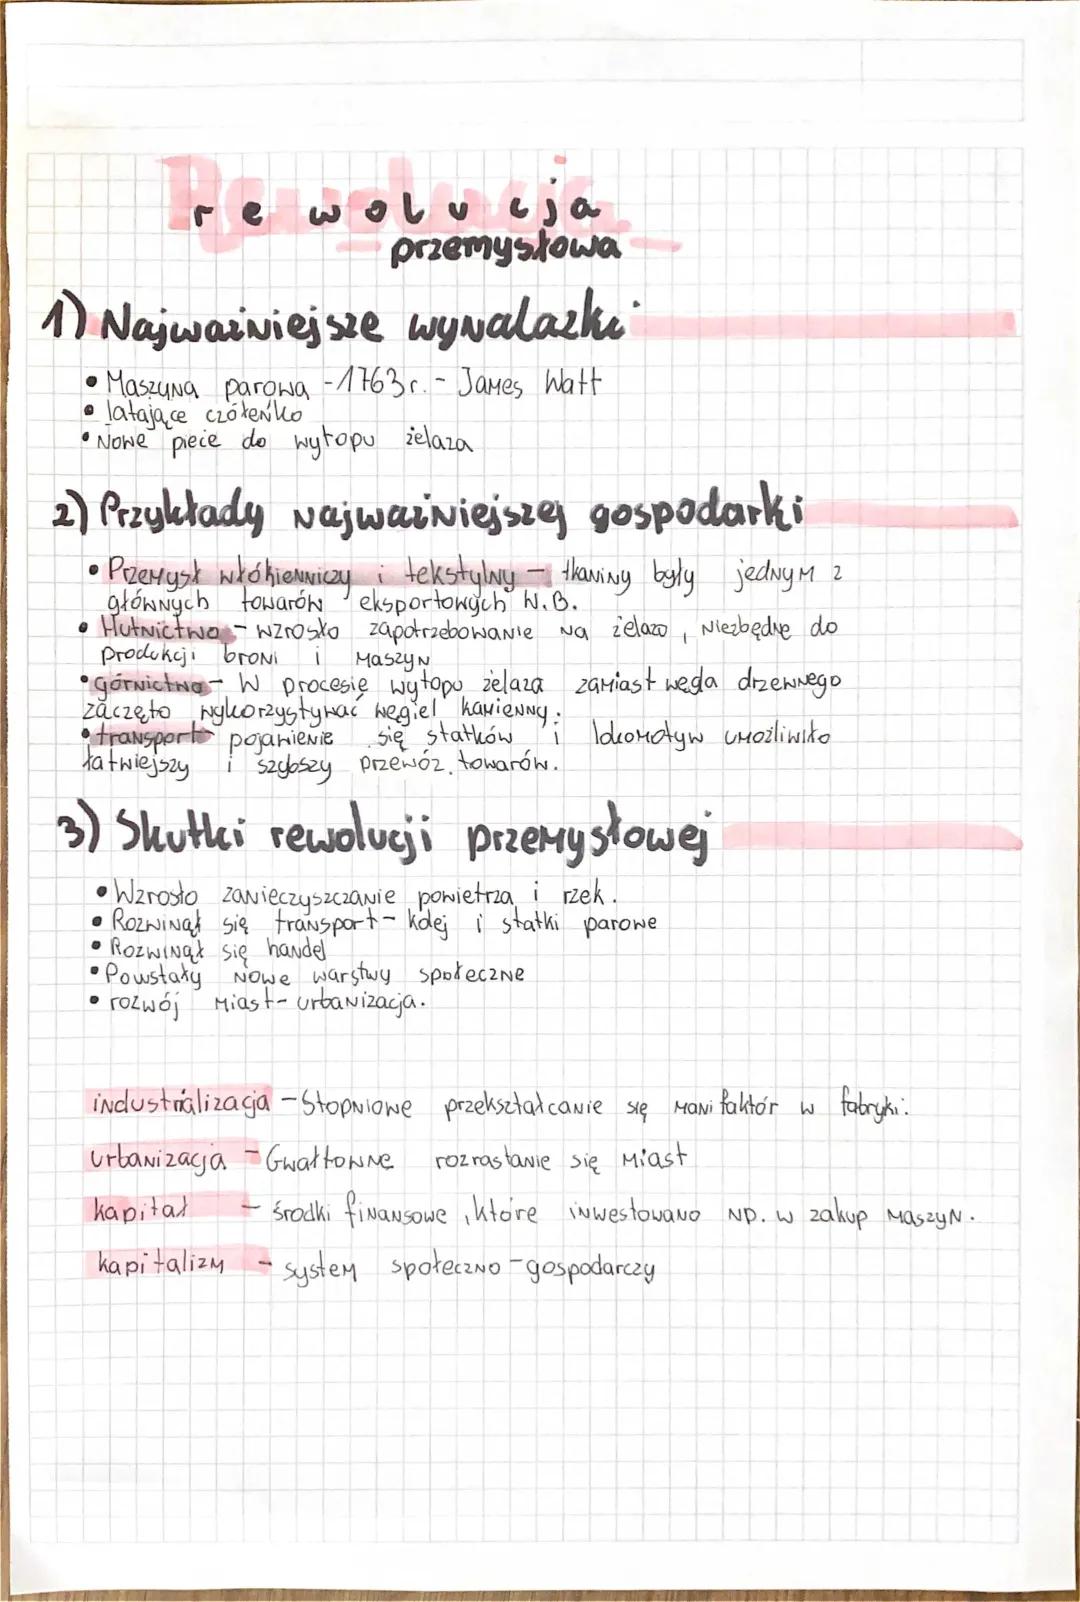 Rewolucja
rewolucja
przemysłowa
1) Najważniejsze wynalazki
• Maszyna parowa - 1763r. - James Watt
• latające czółenko
• Nowe piece do wytopu żelaza
2) Przykłady najważniejszej gospodarki
• Przemysł włókienniczy i tekstylny - tkaniny były jednym z
głównych towarów eksportowych W.B.
• Hutnictwo - wzrosło zapotrzebowanie na żelazo, niezbędne do
produkcji broni i maszyn
• górnictwo - W procesie wytopu żelaza zamiast węgla drzewnego
zaczęto wykorzystywać węgiel kamienny.
• transport - pojawienie się statków i lokomotyw umożliwiło
łatwiejszy i szybszy przewóz towarów.
3) Skutki rewolucji przemysłowej
• Wzrosło zanieczyszczanie powietrza i rzek.
• Rozwinął się transport - kolej i statki parowe
• Rozwinął się handel
• Powstały nowe warstwy społeczne
• rozwój miast - urbanizacja.
industrializacja - Stopniowe przekształcanie się manifaktór w fabryki.
urbanizacja - Gwałtowne rozrastanie się miast
kapitał - środki finansowe, które inwestowano np. w zakup maszyn.
kapitalizm - system społeczno-gospodarczy